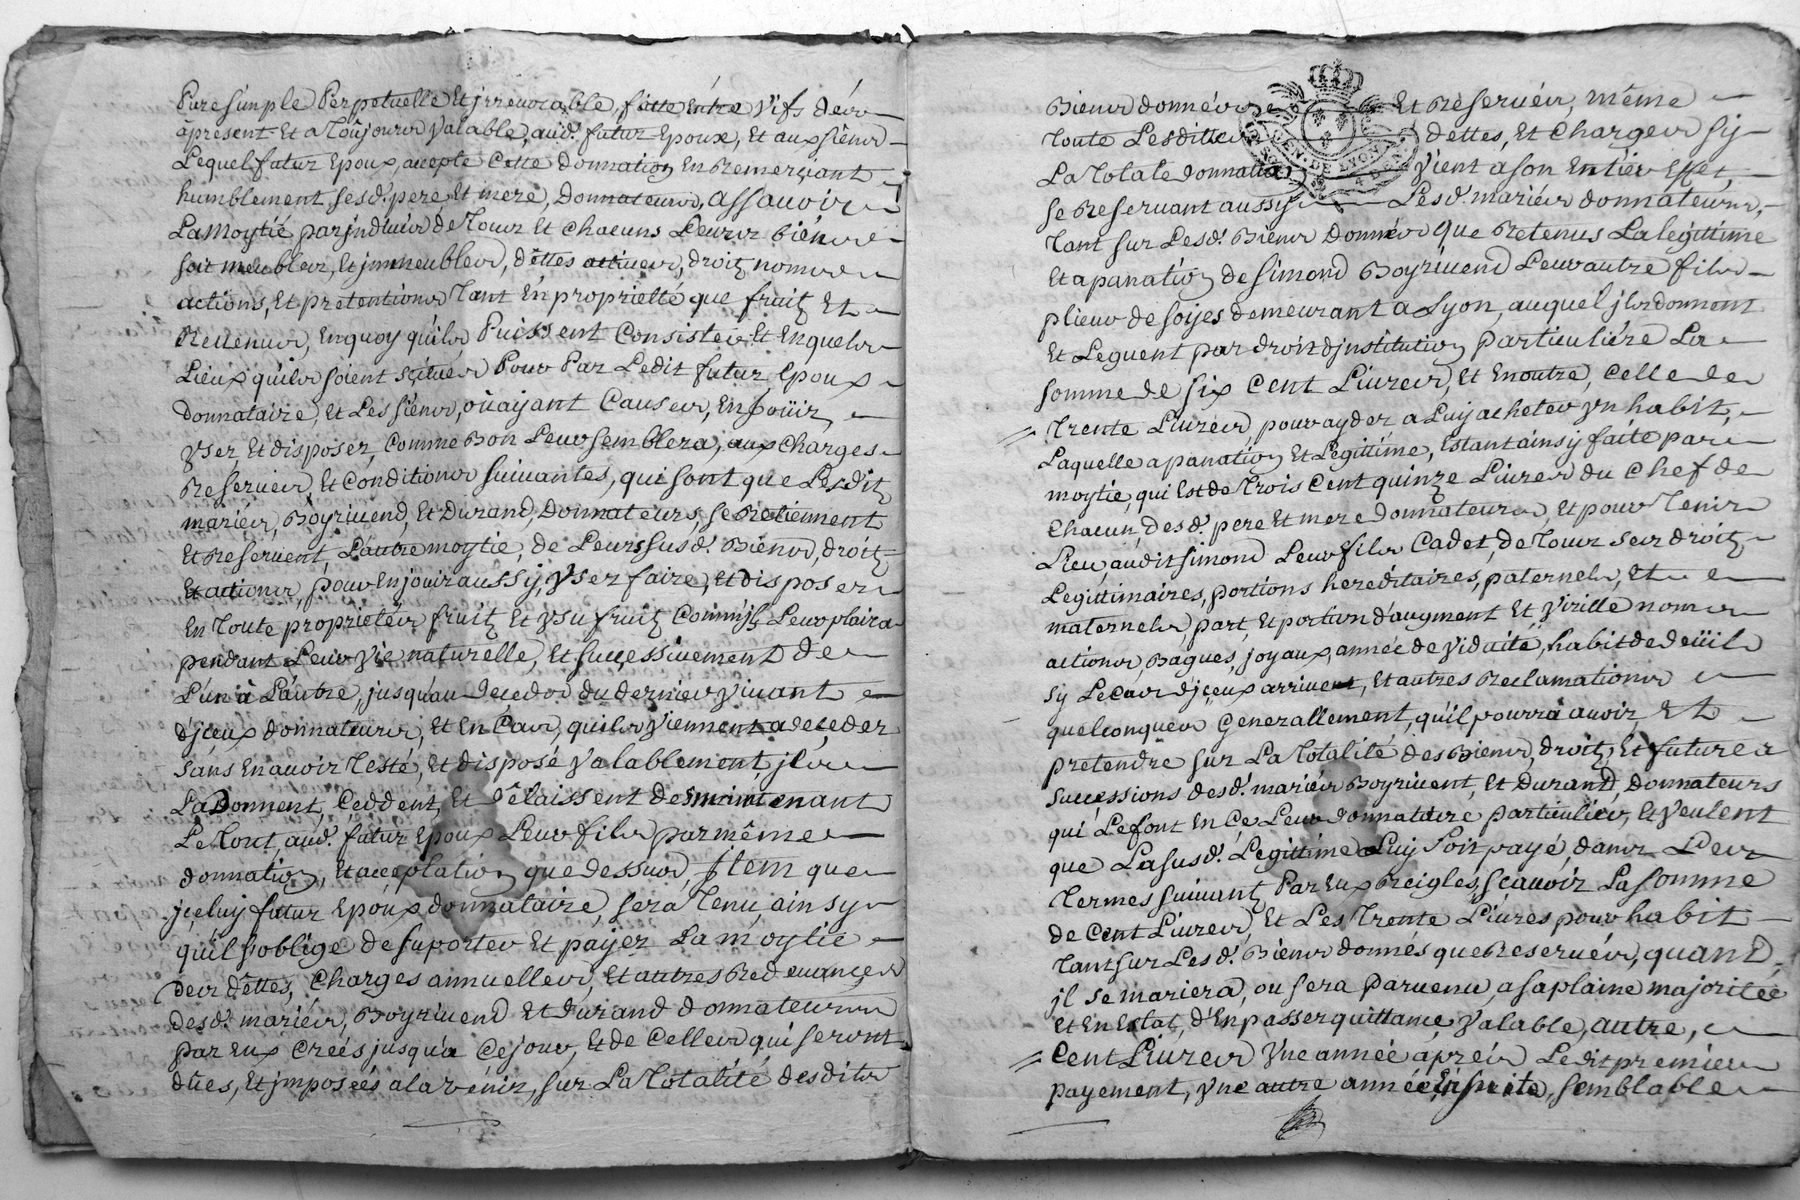 Pure Simple Perpetuelle Et jrreuocable, faitte Entre Vifs dés
àpresent Et a Toûjours Valable, aud. futur Epoux, Et aux siens
Lequel futur Epoux, accepte Cette donnation En Remerçiant
humblement sesd. pere Et mere, Donnateurs, assauoir
La Moytié par jndiuis de Tous Et Chacuns Leurs biens
soit meubles, Et jmmeubles, dêttes actiues, droitz noms
actions, Et pretentions Tant En proprietté que fruitz Et
Reuenus, Enquoy quils Puissent Consister Et Enquels
Lieux quils soient scitués Pour Par Ledit futur Epoux
donnataire, Et Les siens, où ayant Causes, En joüir,
Vser, Et disposer, Comme Bon Leur semblera, aux Charges
Reserues, Et Conditions suiuantes, qui sont que Lesditz
mariés, Boyriuend, Et Durand, Donnateurs, se Retiennent
Et Reseruent, L'autre moytie, de Leurs susd. Biens, droitz
Et actions, pour En jouir aussy, Vser faire, Et disposer
En Toute proprietés fruitz Et Vsufruitz Comm'jlz Leur plaira
pendant Leur Vie naturelle, Et successiuement de
L'un à L'autre, jusqu'au decedos du dernier Viuant
d'jceux donnateurs, Et En Cas, quils Viennent a deceder
sans En auoir Testé, Et disposé Valablement, jls
La Donnent, Ceddent, Et Délaissent des maintenant
Le Tout, aud. futur Epoux Leur fils par même
donnation, Et acceptation que dessus, jtem que
jceluy futur Epoux donnataire, sera Tenu, ainsy
qu'il s'oblige de suporter Et payer La moytie
des dêttes, Charges annuelles, Et autres Redeuances
desd. mariés, Boyriuend Et Durand donnateurs
par Eux Creés jusqu'a Ce jour, Et de Celles qui seront
dües, Et jmposées a la Venir, sur La Totalité desdits
Biens donnés Et Reserués, même
Toute Lesdittes dettes, Et Charges sy
La Totale donnation Vient a son Entier Effet,
se Reseruant aussy Lesd. mariés donnateurs,
Tant sur Lesd. Biens donnés que Retenus La legittime
Et apanation de Simond Boyriuend Leur autre fils
plieur de soijes demeurant a Lyon, auquel jls donnent
Et Leguent par droit d'jnstitution particuliére La
somme de six Cent Liures, Et En outre, Celle de
Trente Liures pour ayder a Luy acheter Vn habit,
Laquelle apanation Et Legittime, Estant ainsy faite par
moytié, qui Est de Trois Cent quinze Liures du Chef de
Chacun, desd. pere Et mere donnateurs, Et pour Tenir
Lieu, audit Simond Leur fils Cadet, de Tous ses droitz
Legittimaires, portions hereditaires, paternels, Et
maternels, part, Et portion d'augment Et Virille noms
actions, Bagues, joyaux, année de Viduité, habit de deüil
sy Le Cas d'jceux arriuent, Et autres Reclamations
quelconques Generallement, qu'il pourra auoir Et
pretendre sur La Totalité des Biens, droitz, Et futures
successions desd. mariés Boyriuent, Et Durand, donnateurs
qui Le font En Ce Leur donnataire particulier, Et Veulent
que La susd. Legittime Luy soit payé, dans Les
Termes suiuantz Par Eux Reiglés, sçauoir La somme
de Cent Liures, Et Les Trente Liures pour habit
Tant sur Lesd. Biens donnés que Reserués, quand,
jl se mariera, ou sera paruenu a sa plaine majoritée
Et En Estat, d'En passer quittance Valable, autre,
Cent Liures Vne année aprés Ledit premier
payement, Vne autre année Ensuite, semblable